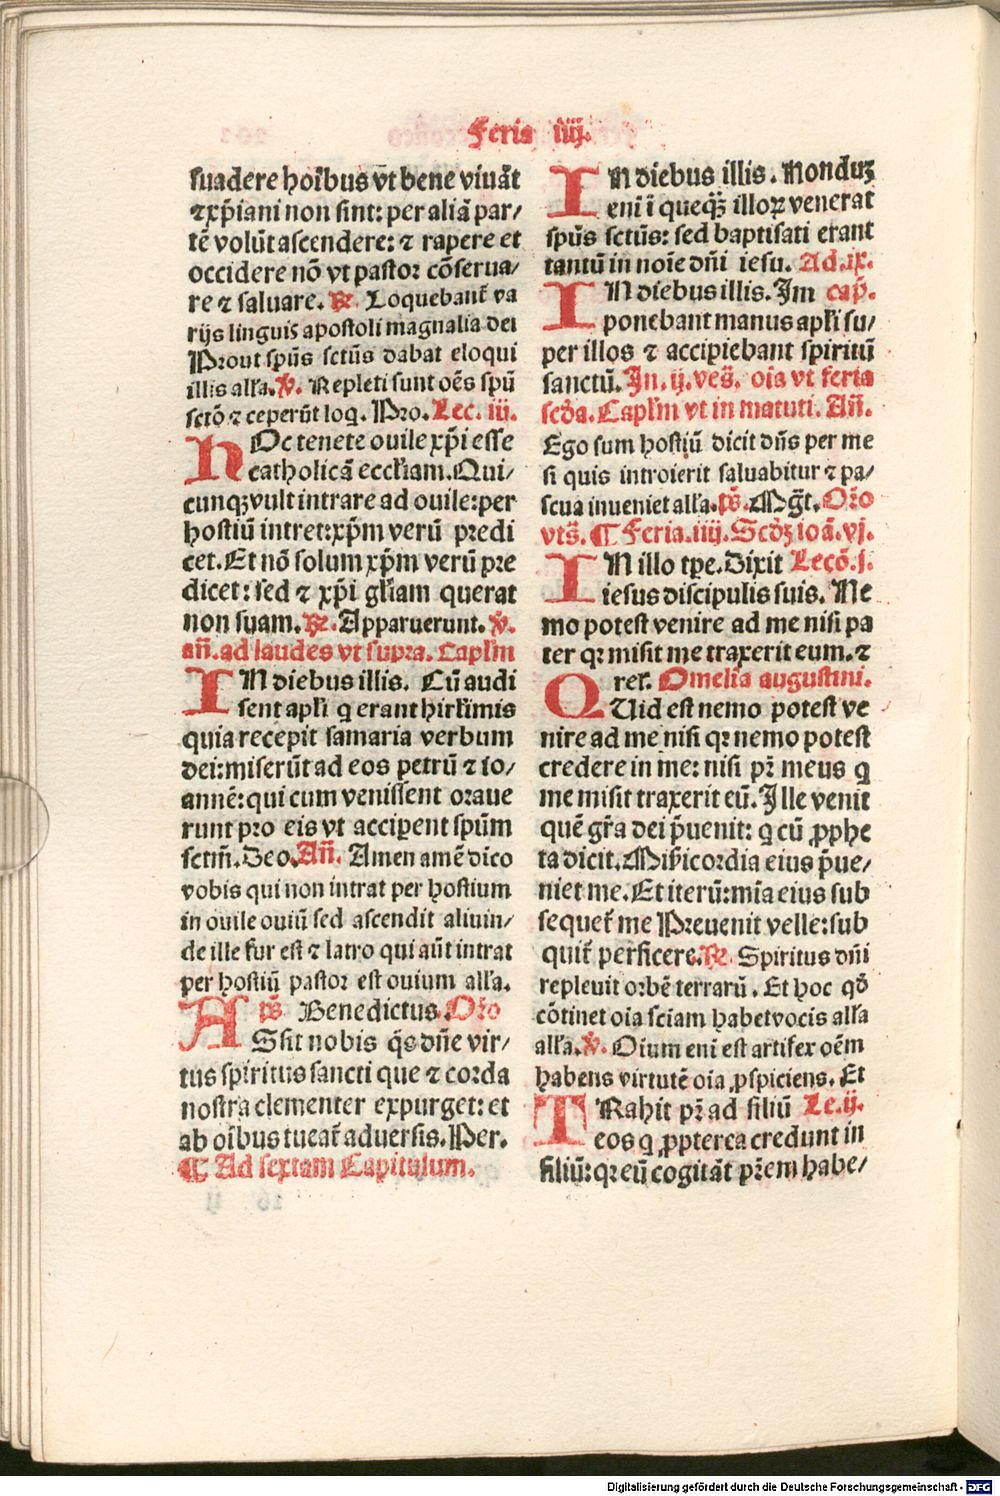 Feria iiij.
suadere hoĩbus vt bene viuãt
⁊ xp̃iani non sint: per aliã par/
tẽ volũt ascendere: ⁊ rapere et
occidere nõ vt pastor cõserua/
re ⁊ saluare. ℟. Loquebant᷑ va
rijs linguis apostoli magnalia dei
Prout spũs sctũs dabat eloqui
illis alľa. ℣. Repleti sunt oẽs spũ
sctõ ⁊ ceperũt loq. Pro. Lec. iii.
HOc tenete ouile xp̃i esse
catholicã ecclľiam. Qui/
cunqȝ vult intrare ad ouile: per
hostiũ intret: xp̃m verũ predi
cet. Et nõ solum xp̃m verũ pre
dicet: sed ⁊ xp̃i glľiam querat
non suam. ℟. Apparuerunt. ℣.
añ. ad laudes vt supra. Caplľm
IN diebus illis. Cũ audi
sent aplľi q erant hirľlimis
quia recepit samaria verbum
dei: miserũt ad eos petrũ ⁊ io/
annẽ: qui cum venissent oraue
runt pro eis vt acciperent spũm
sctm̃. Deo. Añ. Amen amẽ dico
vobis qui non intrat per hostium
in ouile ouiũ sed ascendit aliun/
de ille fur est ⁊ latro qui aũt intrat
per hostiũ pastor est ouium alľa.
ps̃ Benedictus. Or̃o
ASsit nobis q̃s dñe vir/
tus spiritus sancti que ⁊ corda
nostra clementer expurget: et
ab oĩbus tueat᷑ aduersis. Per.
¶ Ad sextam Capitulum.
IN diebus illis. Nonduȝ
eni ĩ queqȝ̃ illoꝝ venerat
spũs sctũs: sed baptisati erant
tantũ in noĩe dñi iesu. Ad. ix.
IN diebus illis. Im cap̃.
ponebant manus aplľi su/
per illos ⁊ accipiebant spiritũ
sanctũ. In. ij. ves̃. oĩa vt feria
scd̃a. Caplľm vt in matuti. Añ.
Ego sum hostiũ dicit dñs per me
si quis introierit saluabitur ⁊ pa/
scua inueniet alľa. ps̃. Mg̃t. Or̃o
vts̃. ¶ Feria. iiij. Scd̃ȝ ioã. vj.
IN illo tp̃e. Dixit Lecõ. j.
iesus discipulis suis. Ne
mo potest venire ad me nisi pa
ter qꝛ misit me traxerit eum. ⁊
relľ. Omelĩa augustini.
QUid est nemo potest ve
nire ad me nisi qꝛ nemo potest
credere in me: nisi pr̃ meus q
me misit traxerit eũ. Ille venit
quẽ gr̃a dei p̃uenit: q cũ ꝓphe
ta dicit. Mis̃icordia eius p̃ue/
niet me. Et iterũ: mĩa eius sub
sequet᷑ me Preuenit velle: sub
quit᷑ perficere. ℟. Spiritus dñi
repleuit orbẽ terrarũ. Et hoc qď
cõtinet oĩa sciam habet vocis alľa
alľa. ℣. Oium eni est artifex oẽm
habens virtutẽ oĩa ꝓspiciens. Et
TRahit pr̃ ad filiũ Le. ij.
eos q ꝓpterea credunt in
filiũ: qꝛ eũ cogitãt pr̃em habe/
Digitalisierung gefördert durch die Deutsche Forschungsgemeinschaft - DFG